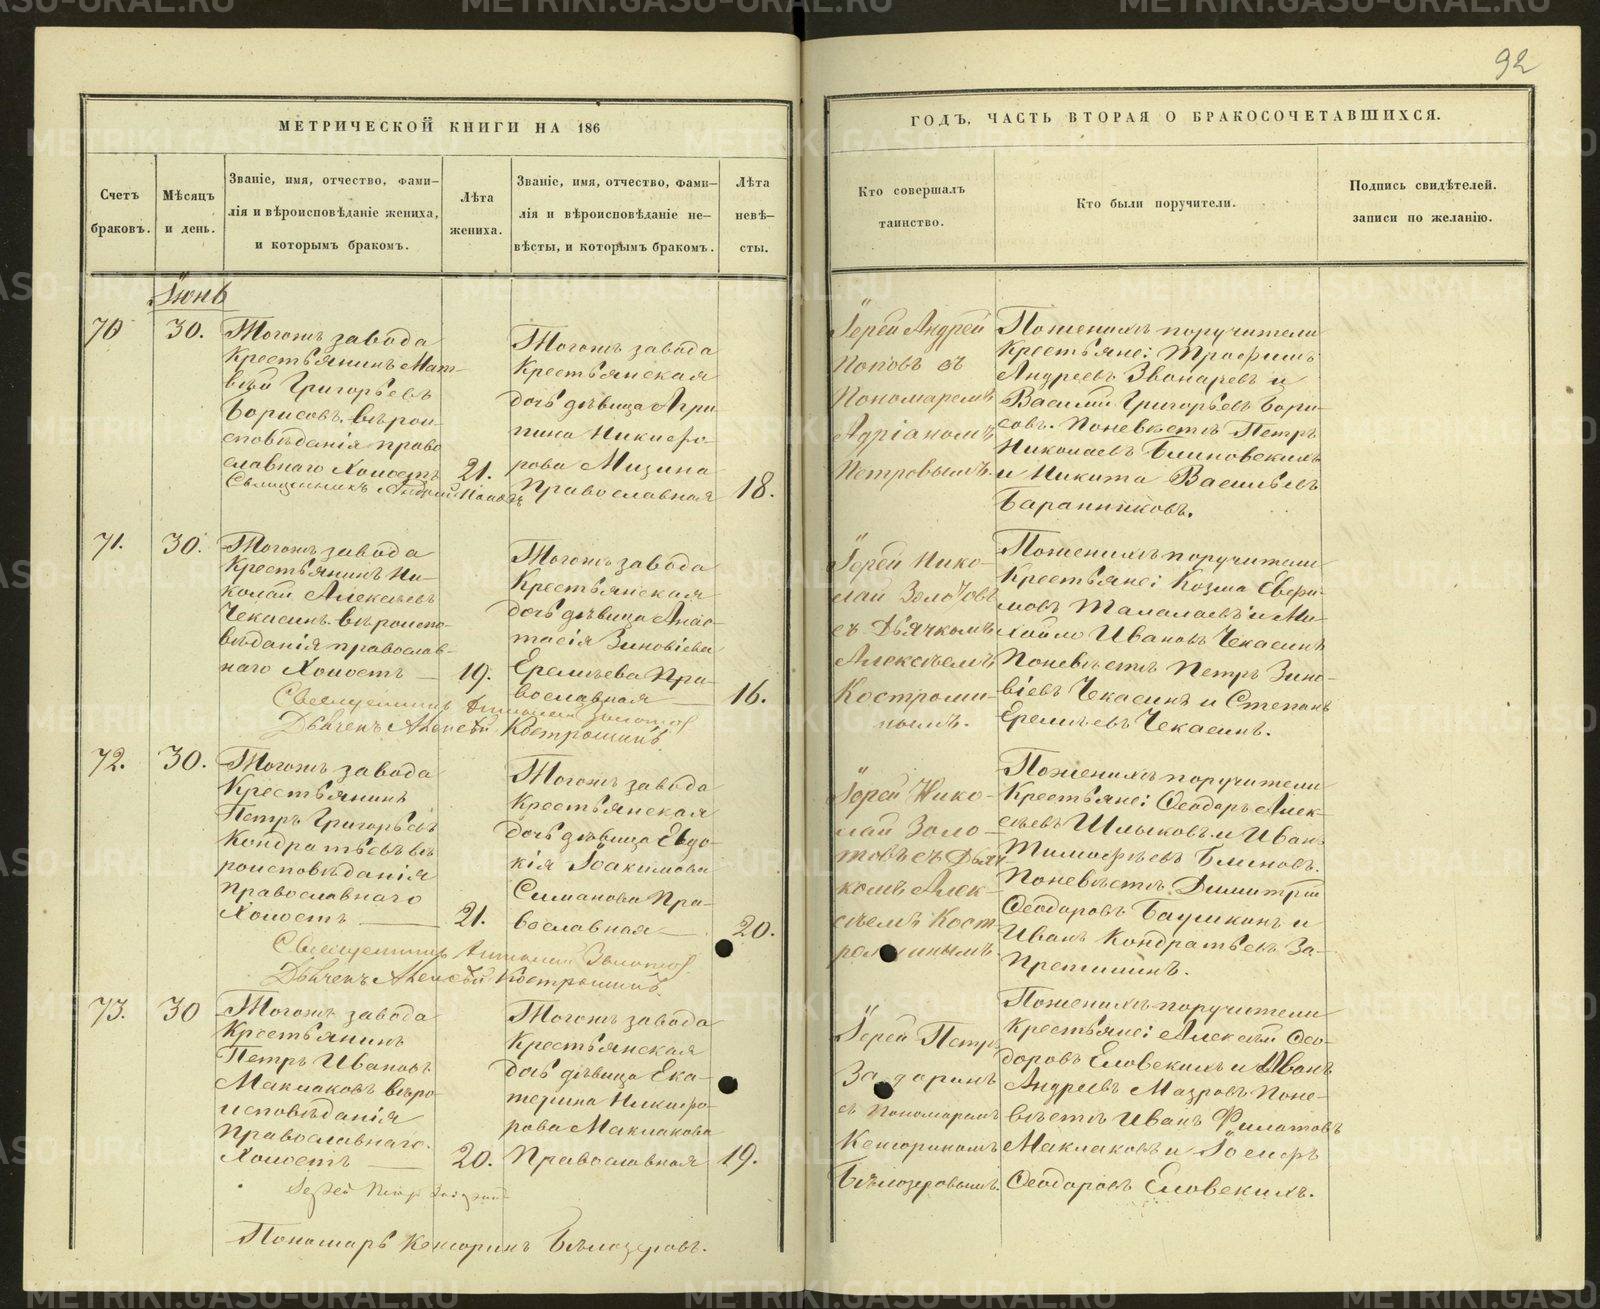 92
МЕТРИЧЕСКОЙ КНИГИ НА 186
ГОДЪ, ЧАСТЬ ВТОРАЯ О БРАКОСОЧЕТАВШИХСЯ.
Счетъ
браковъ.
Мѣсяцъ
и день.
Званіе, имя, отчество, фами-
лія и вѣроисповѣданіе жениха,
и которымъ бракомъ.
Лѣта
жениха.
Званіе, имя, отчество, фами-
лія и вѣроисповѣданіе не-
вѣсты, и которымъ бракомъ.
Лѣта
невѣ-
сты.
Кто совершалъ
таинство.
Кто были поручители.
Подпись свидѣтелей.
записи по желанію.
Іюнь
70
30.
Тогожъ завода
Крестьянинъ Мат-
вѣй Григорьевъ
Борисовъ. вѣрои-
сповѣданія право
славнаго Холостъ
21.
Тогожъ завода
Крестьянская
дочь дѣвица Агри
пина Никифо-
рова Мизина
Православная
18.
Священникъ Андрей Поповъ
Іерей Андрей
Поповъ съ
Пономаремъ
Адріаномъ
Петровымъ.
Поженихѣ поручители
Крестьяне: Трофимъ
Андреевъ Звонаревъ и
Василій Григорьевъ Бори-
совъ. Поневѣстѣ Петръ
Николаевъ Блиновскихъ
и Никита Васильевъ
Баранниковъ.
71.
30.
Тогожъ завода
Крестьянинъ Ни-
колай Алексѣевъ
Чекасинъ. вѣроиспо-
вѣданія православ-
наго Холостъ
19.
Тогожъ завода
Крестьянская
дочь дѣвица Анас-
тасія Зиновіева
Еремѣева Пра-
вославная
16.
Священникъ Николай Золотовъ
Дьячекъ Алексѣй Костроминъ.
Іерей Нико-
лай Золотовъ
съ Дьячкомъ
Алексѣемъ
Костроми-
нымъ.
Поженихѣ поручители
Крестьяне: Козма Евфи-
мовъ Талалаевъ и Ми-
хайло Ивановъ Чекасинъ
Поневѣстѣ Петръ Зино-
віевъ Чекасинъ и Степанъ
Еремѣевъ Чекасинъ.
72.
30.
Тогожъ завода
Крестьянинъ
Петръ Григорьевъ
Кондратьевъ вѣ
роисповѣданія
Православнаго
Холостъ
21.
Тогожъ завода
Крестьянская
дочь дѣвица Евдо-
кія Іоакимова
Симанова Пра-
вославная
20.
Священникъ Николай Золотовъ
Дьячекъ Алексѣй Костроминъ.
Іерей Нико-
лай Золо-
товъ съ Дьяч-
комъ Алек-
сѣемъ Кост-
роминымъ.
Поженихѣ поручители
Крестьяне: Ѳеодоръ Алек-
сѣевъ Шлыковъ и Иванъ
Тимофѣевъ Блиновъ.
Поневѣстѣ Димитрій
Ѳеодоровъ
Иванъ Кондратьевъ За-
73.
30
Тогожъ завода
Крестьянинъ
Петръ Ивановъ
Маклаковъ вѣро
исповѣданія
Православнаго.
Холостъ
20.
Тогожъ завода
Крестьянская
дочь дѣвица Ека-
терина Никифо-
рова Маклакова
Православная
19.
Іерей Петръ
Пономарь Кенсоринъ Бѣлозеровъ.
Іерей Петръ
Задоринъ
съ Пономаремъ
Кенсориномъ
Бѣлозеровымъ.
Поженихѣ поручители
Крестьяне: Алексѣй Ѳео-
доровъ Еловскихъ и Иванъ
Андреевъ Мазровъ Поне-
вѣстѣ Иванъ Филатовъ
Маклаковъ и Іосифъ
Ѳеодоровъ Еловскихъ.
METRIKI.GASO-URAL.RU